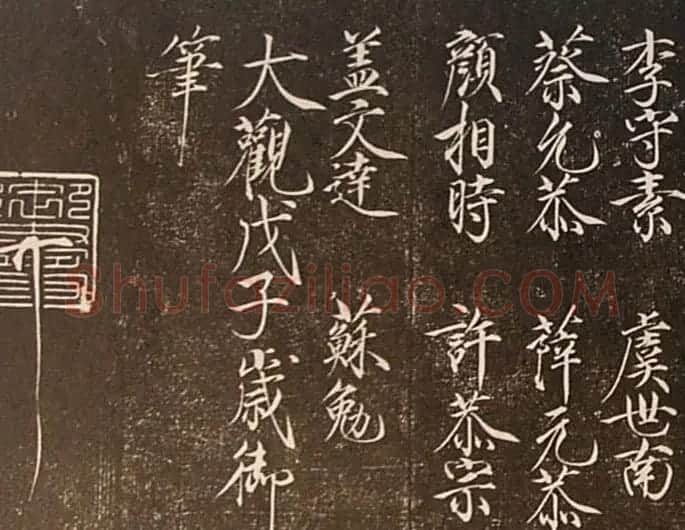 李守素 虞世南
蔡允恭 薛元恭
顏相時 許恭宗
盖文達 蘇勉
大觀戊子歲御
筆
Shufaziliao.COM